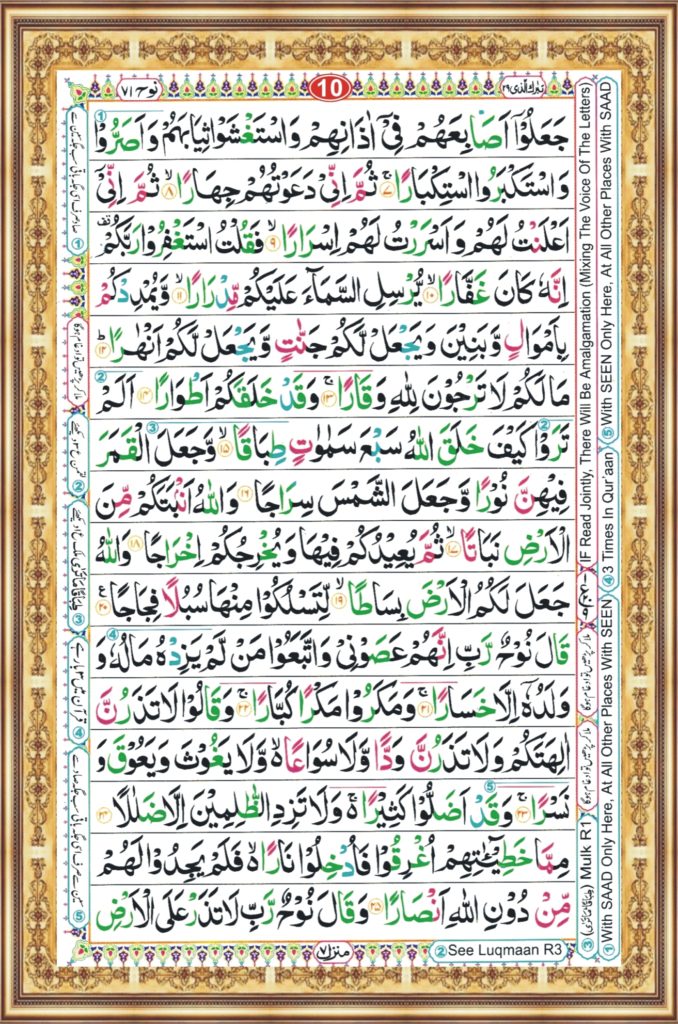 نوح ۷۱
10
تبٰرك الذى ۲۹
جَعَلُوْۤا اَصَابِعَهُمْ فِيْۤ اٰذَانِهِمْ وَاسْتَغْشَوْا ثِيَابَهُمْ وَاَصَرُّوْا
وَاسْتَكْبَرُوا اسْتِكْبَارًا ۷ ثُمَّ اِنِّيْ دَعَوْتُهُمْ جِهَارًا ۸ ثُمَّ اِنِّيْۤ
اَعْلَنْتُ لَهُمْ وَاَسْرَرْتُ لَهُمْ اِسْرَارًا ۹ فَقُلْتُ اسْتَغْفِرُوْا رَبَّكُمْ
اِنَّهٗ كَانَ غَفَّارًا ۱۰ يُّرْسِلِ السَّمَآءَ عَلَيْكُمْ مِّدْرَارًا ۱۱ وَّيُمْدِدْكُمْ
بِاَمْوَالٍ وَّبَنِيْنَ وَيَجْعَلْ لَّكُمْ جَنّٰتٍ وَّيَجْعَلْ لَّكُمْ اَنْهٰرًا ۱۲
مَا لَكُمْ لَا تَرْجُوْنَ لِلّٰهِ وَقَارًا ۱۳ وَقَدْ خَلَقَكُمْ اَطْوَارًا ۱۴ اَلَمْ
تَرَوْا كَيْفَ خَلَقَ اللّٰهُ سَبْعَ سَمٰوٰتٍ طِبَاقًا ۱۵ وَّجَعَلَ الْقَمَرَ
فِيْهِنَّ نُوْرًا وَّجَعَلَ الشَّمْسَ سِرَاجًا ۱۶ وَاللّٰهُ اَنْۢبَتَكُمْ مِّنَ
الْاَرْضِ نَبَاتًا ۱۷ ثُمَّ يُعِيْدُكُمْ فِيْهَا وَيُخْرِجُكُمْ اِخْرَاجًا ۱۸ وَاللّٰهُ
جَعَلَ لَكُمُ الْاَرْضَ بِسَاطًا ۱۹ لِّتَسْلُكُوْا مِنْهَا سُبُلًا فِجَاجًا ۲۰ ع
قَالَ نُوْحٌ رَّبِّ اِنَّهُمْ عَصَوْنِيْ وَاتَّبَعُوْا مَنْ لَّمْ يَزِدْهُ مَالُهٗ وَ
وَلَدُهٗۤ اِلَّا خَسَارًا ۲۱ وَمَكَرُوْا مَكْرًا كُبَّارًا ۲۲ وَقَالُوْا لَا تَذَرُنَّ
اٰلِهَتَكُمْ وَلَا تَذَرُنَّ وَدًّا وَّلَا سُوَاعًا وَّلَا يَغُوْثَ وَيَعُوْقَ وَ
نَسْرًا ۲۳ وَقَدْ اَضَلُّوْا كَثِيْرًا وَلَا تَزِدِ الظّٰلِمِيْنَ اِلَّا ضَلٰلًا ۲۴
مِمَّا خَطِيْٓـٰٔتِهِمْ اُغْرِقُوْا فَاُدْخِلُوْا نَارًا فَلَمْ يَجِدُوْا لَهُمْ
مِّنْ دُوْنِ اللّٰهِ اَنْصَارًا ۲۵ وَقَالَ نُوْحٌ رَّبِّ لَا تَذَرْ عَلَى الْاَرْضِ
منزل ۷
② See Luqmaan R3
③ Mulk R1
(IF Read Jointly, There Will Be Amalgamation (Mixing The Voice Of The Letters)
① With SAAD Only Here, At All Other Places With SEEN
④ 3 Times In Qur'aan
⑤ With SEEN Only Here, At All Other Places With SAAD